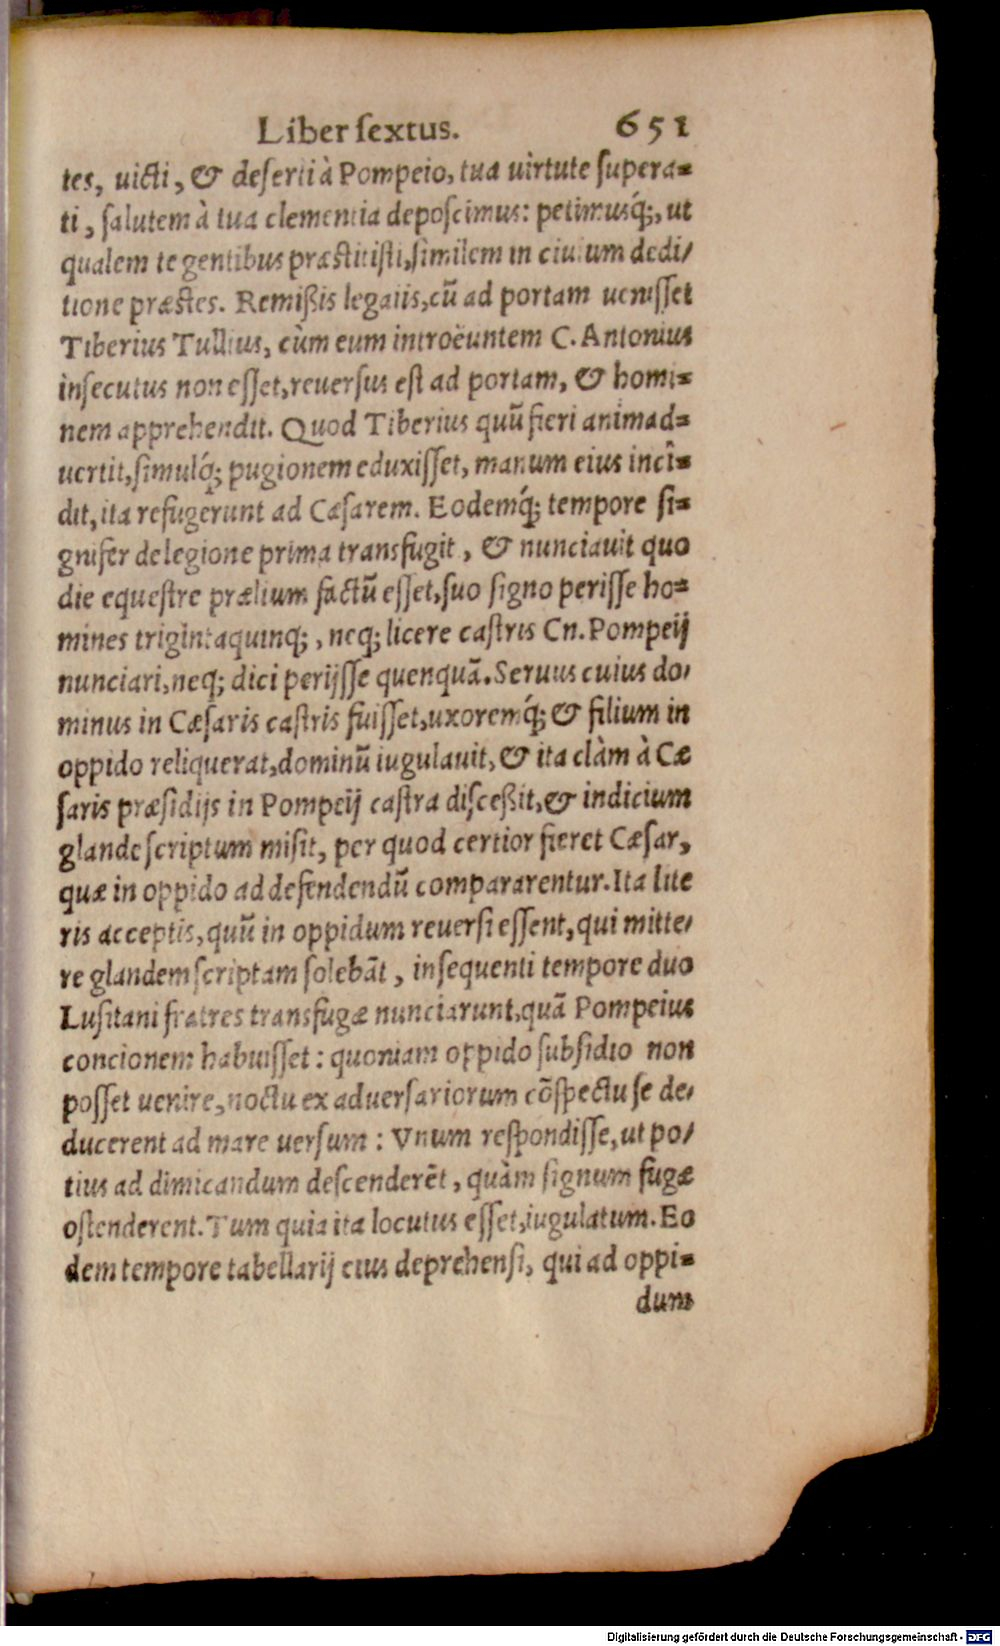 Liber sextus. 651
tes, uicti, & deserti à Pompeio, tua uirtute supera=
ti, salutem à tua clementia deposcimus: petimusq́;, ut
qualem te gentibus præstitisti, similem in ciuium dedi/
tione præstes. Remißis legatis, cū ad portam uenisset
Tiberius Tullius, cùm eum introëuntem C. Antonius
insecutus non esset, reuersus est ad portam, & homi=
nem apprehendit. Quod Tiberius quū fieri animad=
uertit, simulq́; pugionem eduxisset, manum eius incî=
dit, ita refugerunt ad Cæsarem. Eodemq́; tempore si=
gnifer de legione prima transfugit, & nunciauit quo
die equestre prælium factū esset, suo signo perisse ho=
mines trigintaquinq;, neq; licere castris Cn. Pompeij
nunciari, neq; dici perijsse quenquā. Seruus cuius do/
minus in Cæsaris castris fuisset, uxoremq́; & filium in
oppido reliquerat, dominū iugulauit, & ita clàm à Cæ
saris præsidijs in Pompeij castra disceßit, & indicium
glande scriptum misit, per quod certior fieret Cæsar,
quæ in oppido ad defendendū compararentur. Ita lite
ris acceptis, quū in oppidum reuersi essent, qui mitte/
re glandem scriptam solebāt, insequenti tempore duo
Lusitani fratres transfugæ nunciarunt, quā Pompeius
concionem habuisset: quoniam oppido subsidio non
posset uenire, noctu ex aduersariorum cōspectu se de/
ducerent ad mare uersum: Vnum respondisse, ut po/
tius ad dimicandum descenderēt, quàm signum fugæ
ostenderent. Tum quia ita locutus esset, iugulatum. Eo
dem tempore tabellarij eius deprehensi, qui ad oppi=
dum
Digitalisierung gefördert durch die Deutsche Forschungsgemeinschaft - DFG